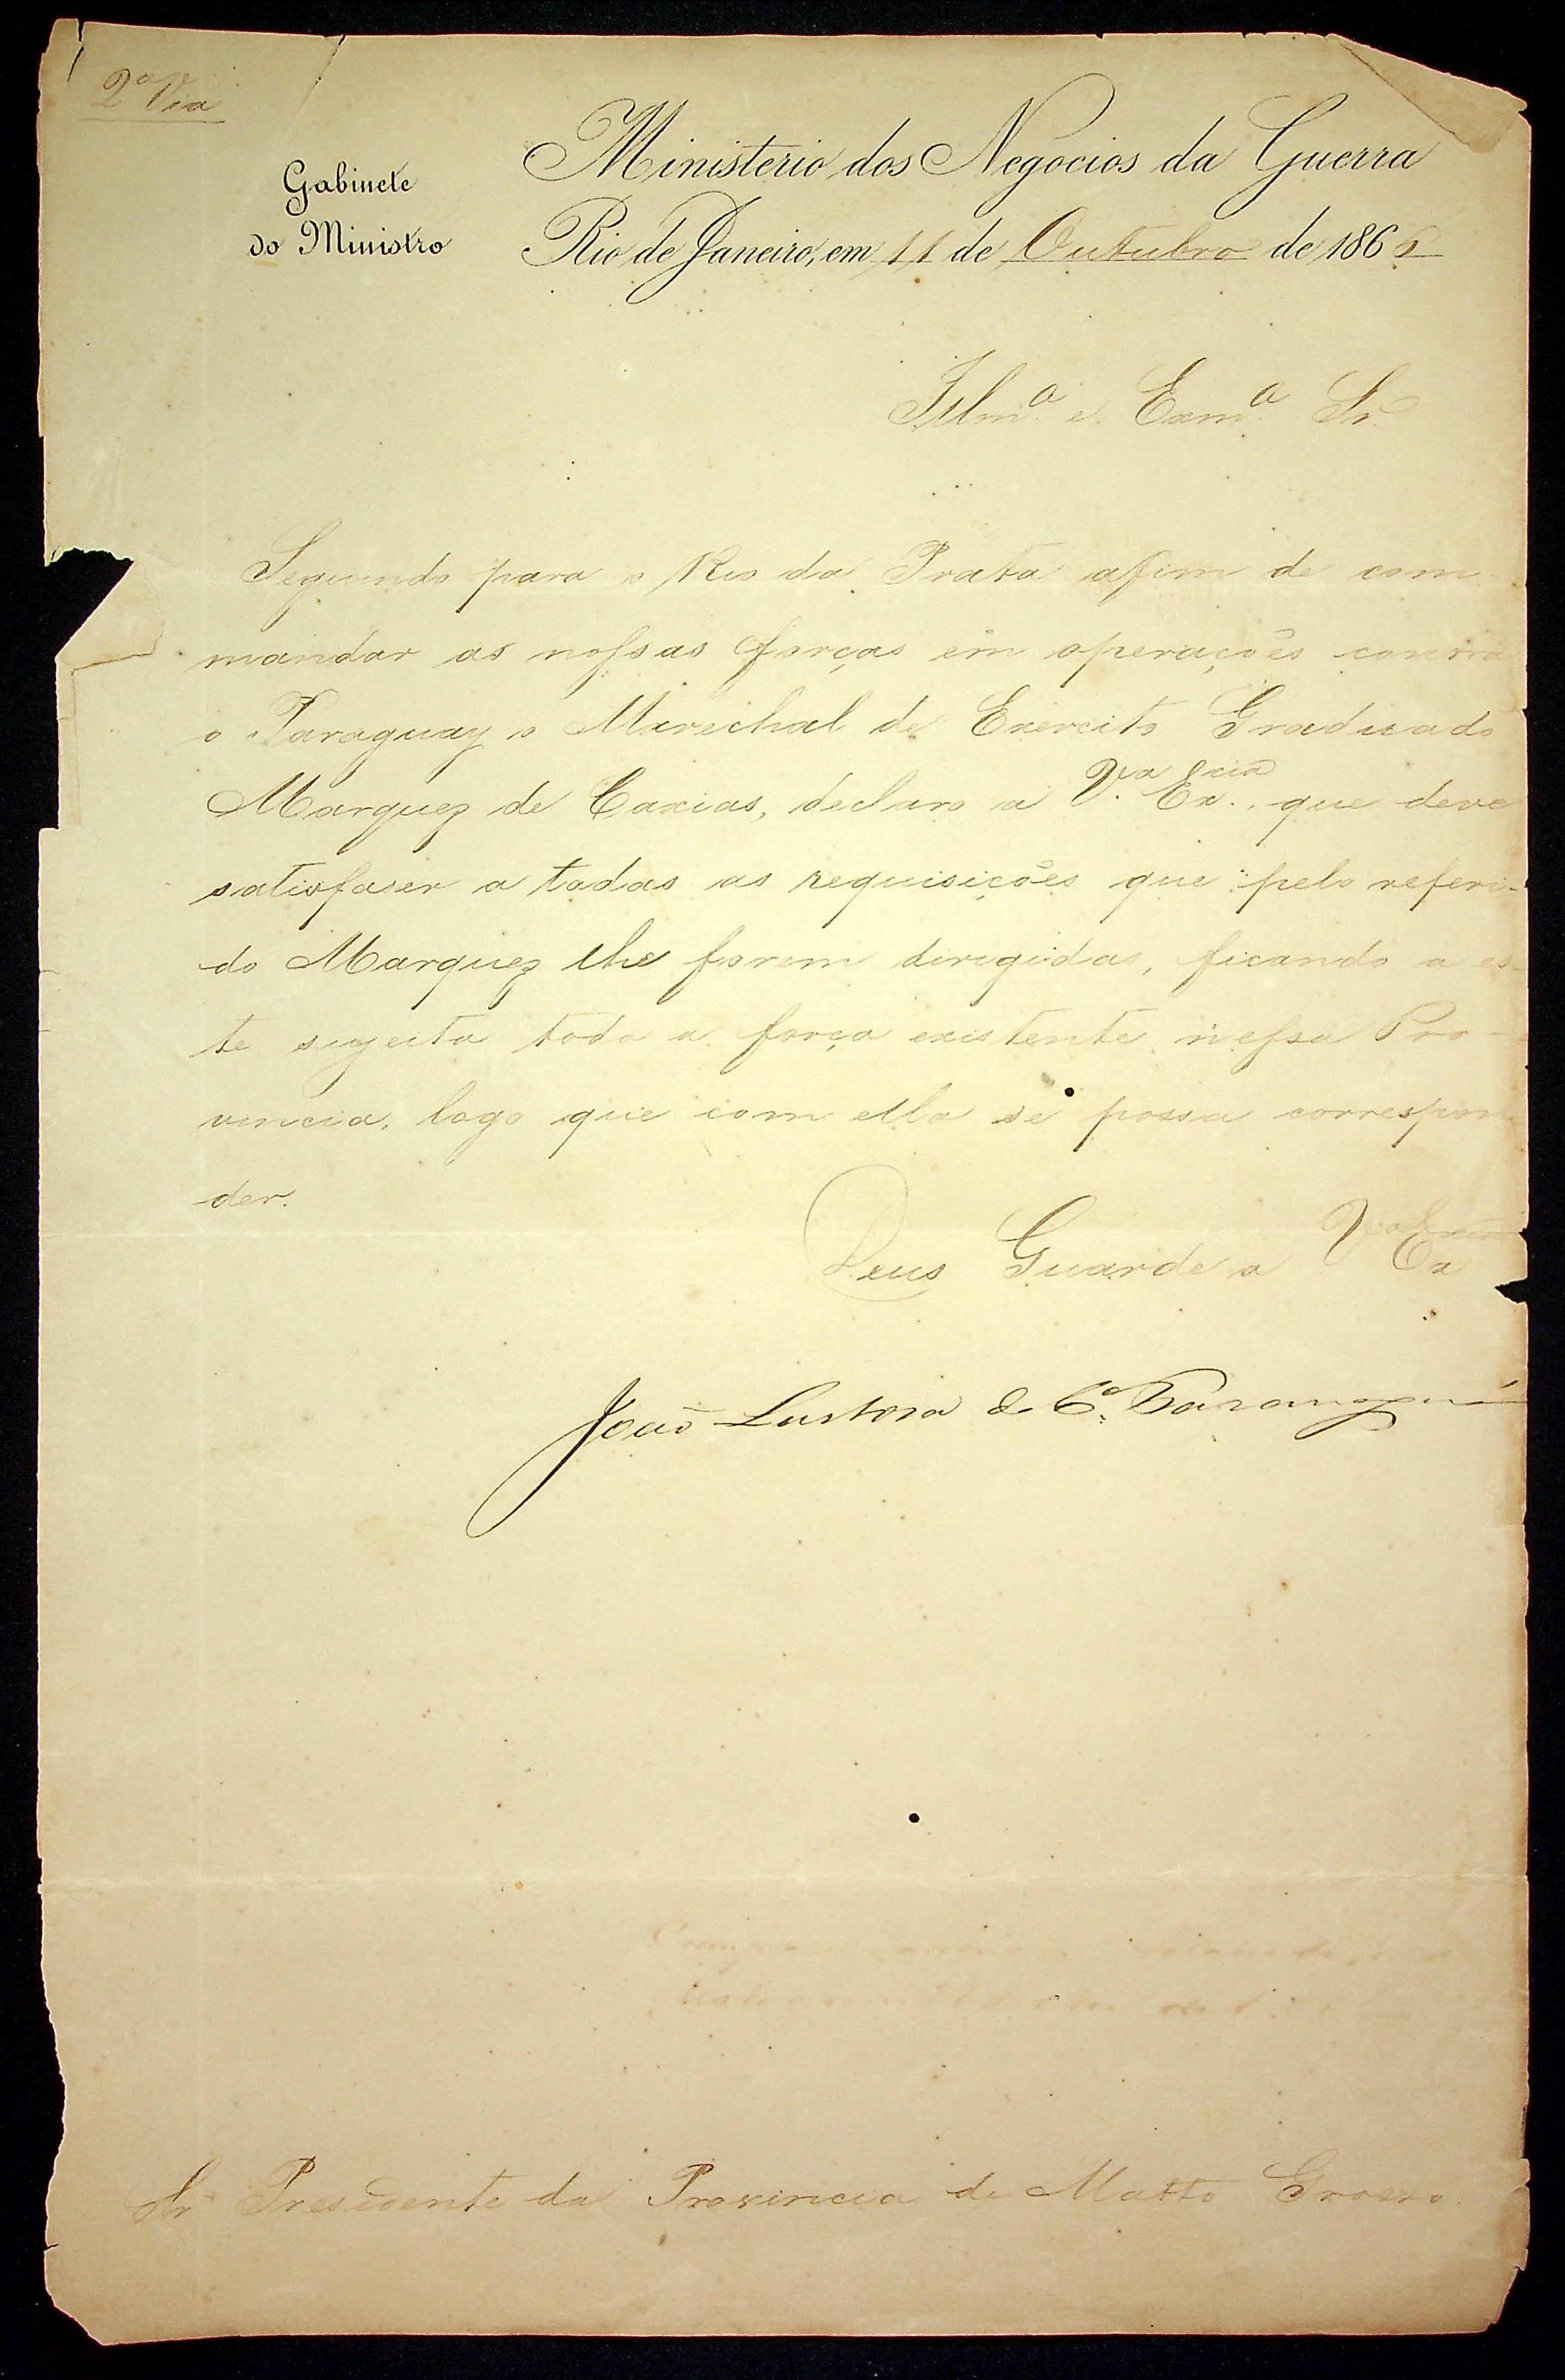 2ª Via
Gabinete
do Ministro
Ministerio dos Negocios da Guerra
Rio de Janeiro, em 11 de Outubro de 1866
Illmº e Exmº Sr.
Seguindo para o Rio da Prata afim de com-
mandar as nossas forças em operações contra
o Paraguay o Marechal de Exercito Graduado
Marquez de Caxias, declaro a V.ª Ex.cia que deve
satisfaser a todas as requisições que pelo referi-
do Marquez lhe forem dirigidas, ficando a es-
te sugeita toda a força existente nessa Pro-
vincia, logo que com ella se possa correspon-
der.
Deus Guarde a V.ª Ex.cia
João Lustosa da Cª Paranaguá
Sr. Presidente da Provincia de Matto Grosso.